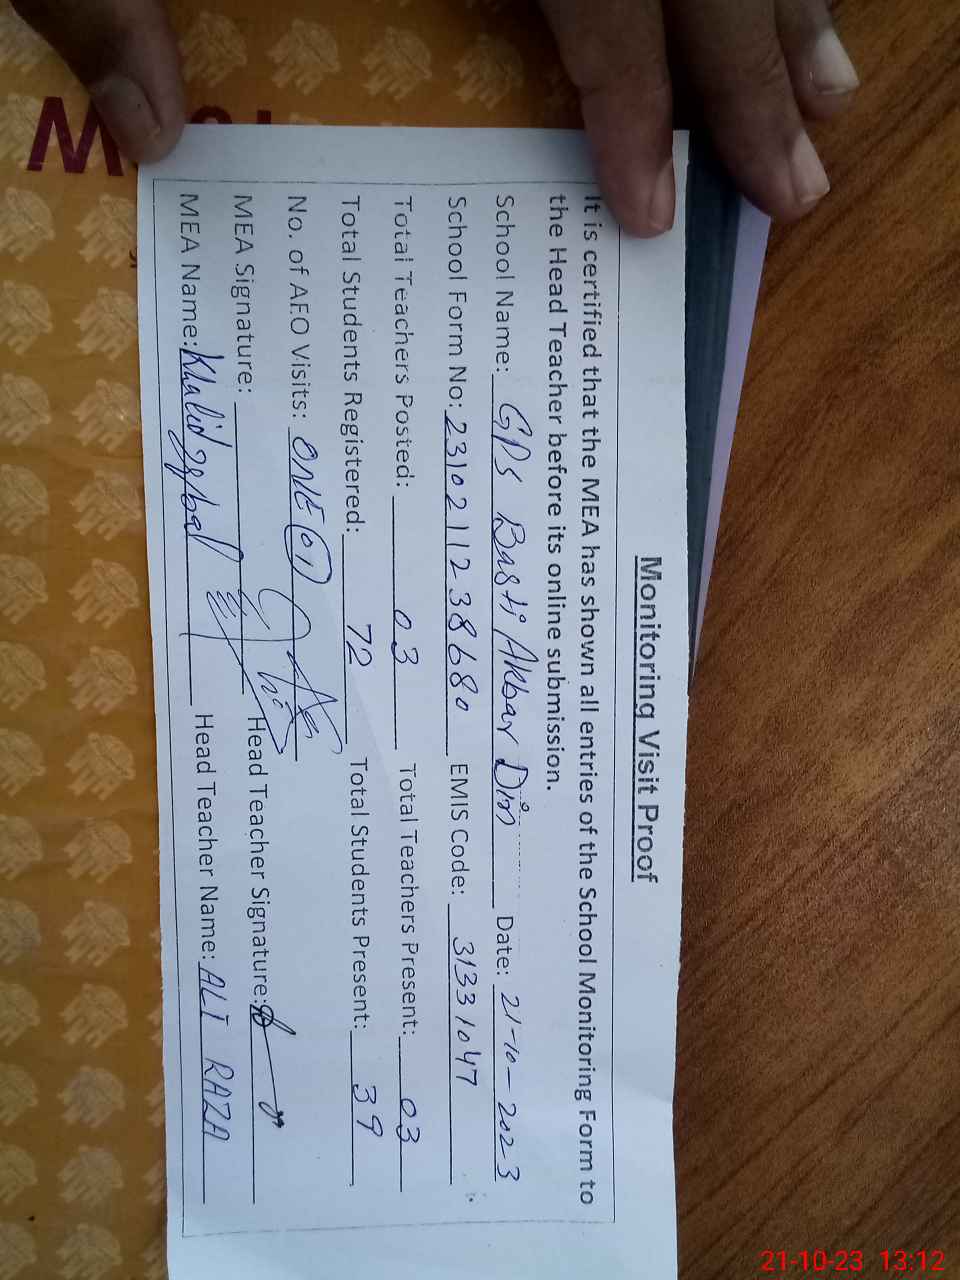 Monitoring Visit Proof
It is certified that the MEA has shown all entries of the School Monitoring Form to
the Head Teacher before its online submission.
School Name: GPS Basti Akbar Din Date: 21-10-2023
School Form No: 2310211238680 EMIS Code: 31331047
Total Teachers Posted: 03 Total Teachers Present: 03
Total Students Registered: 72 Total Students Present: 39
No. of AEO Visits: ONE (01)
MEA Signature: Head Teacher Signature:
MEA Name: Khalid Iqbal Head Teacher Name: ALI RAZA
21-10-23 13:12